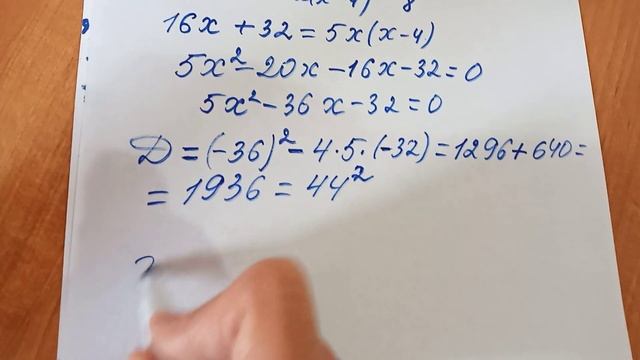 16x + 32 = 5x(x-4)
5x² - 20x - 16x - 32 = 0
5x² - 36x - 32 = 0
D = (-36)² - 4·5·(-32) = 1296 + 640 =
= 1936 = 44²